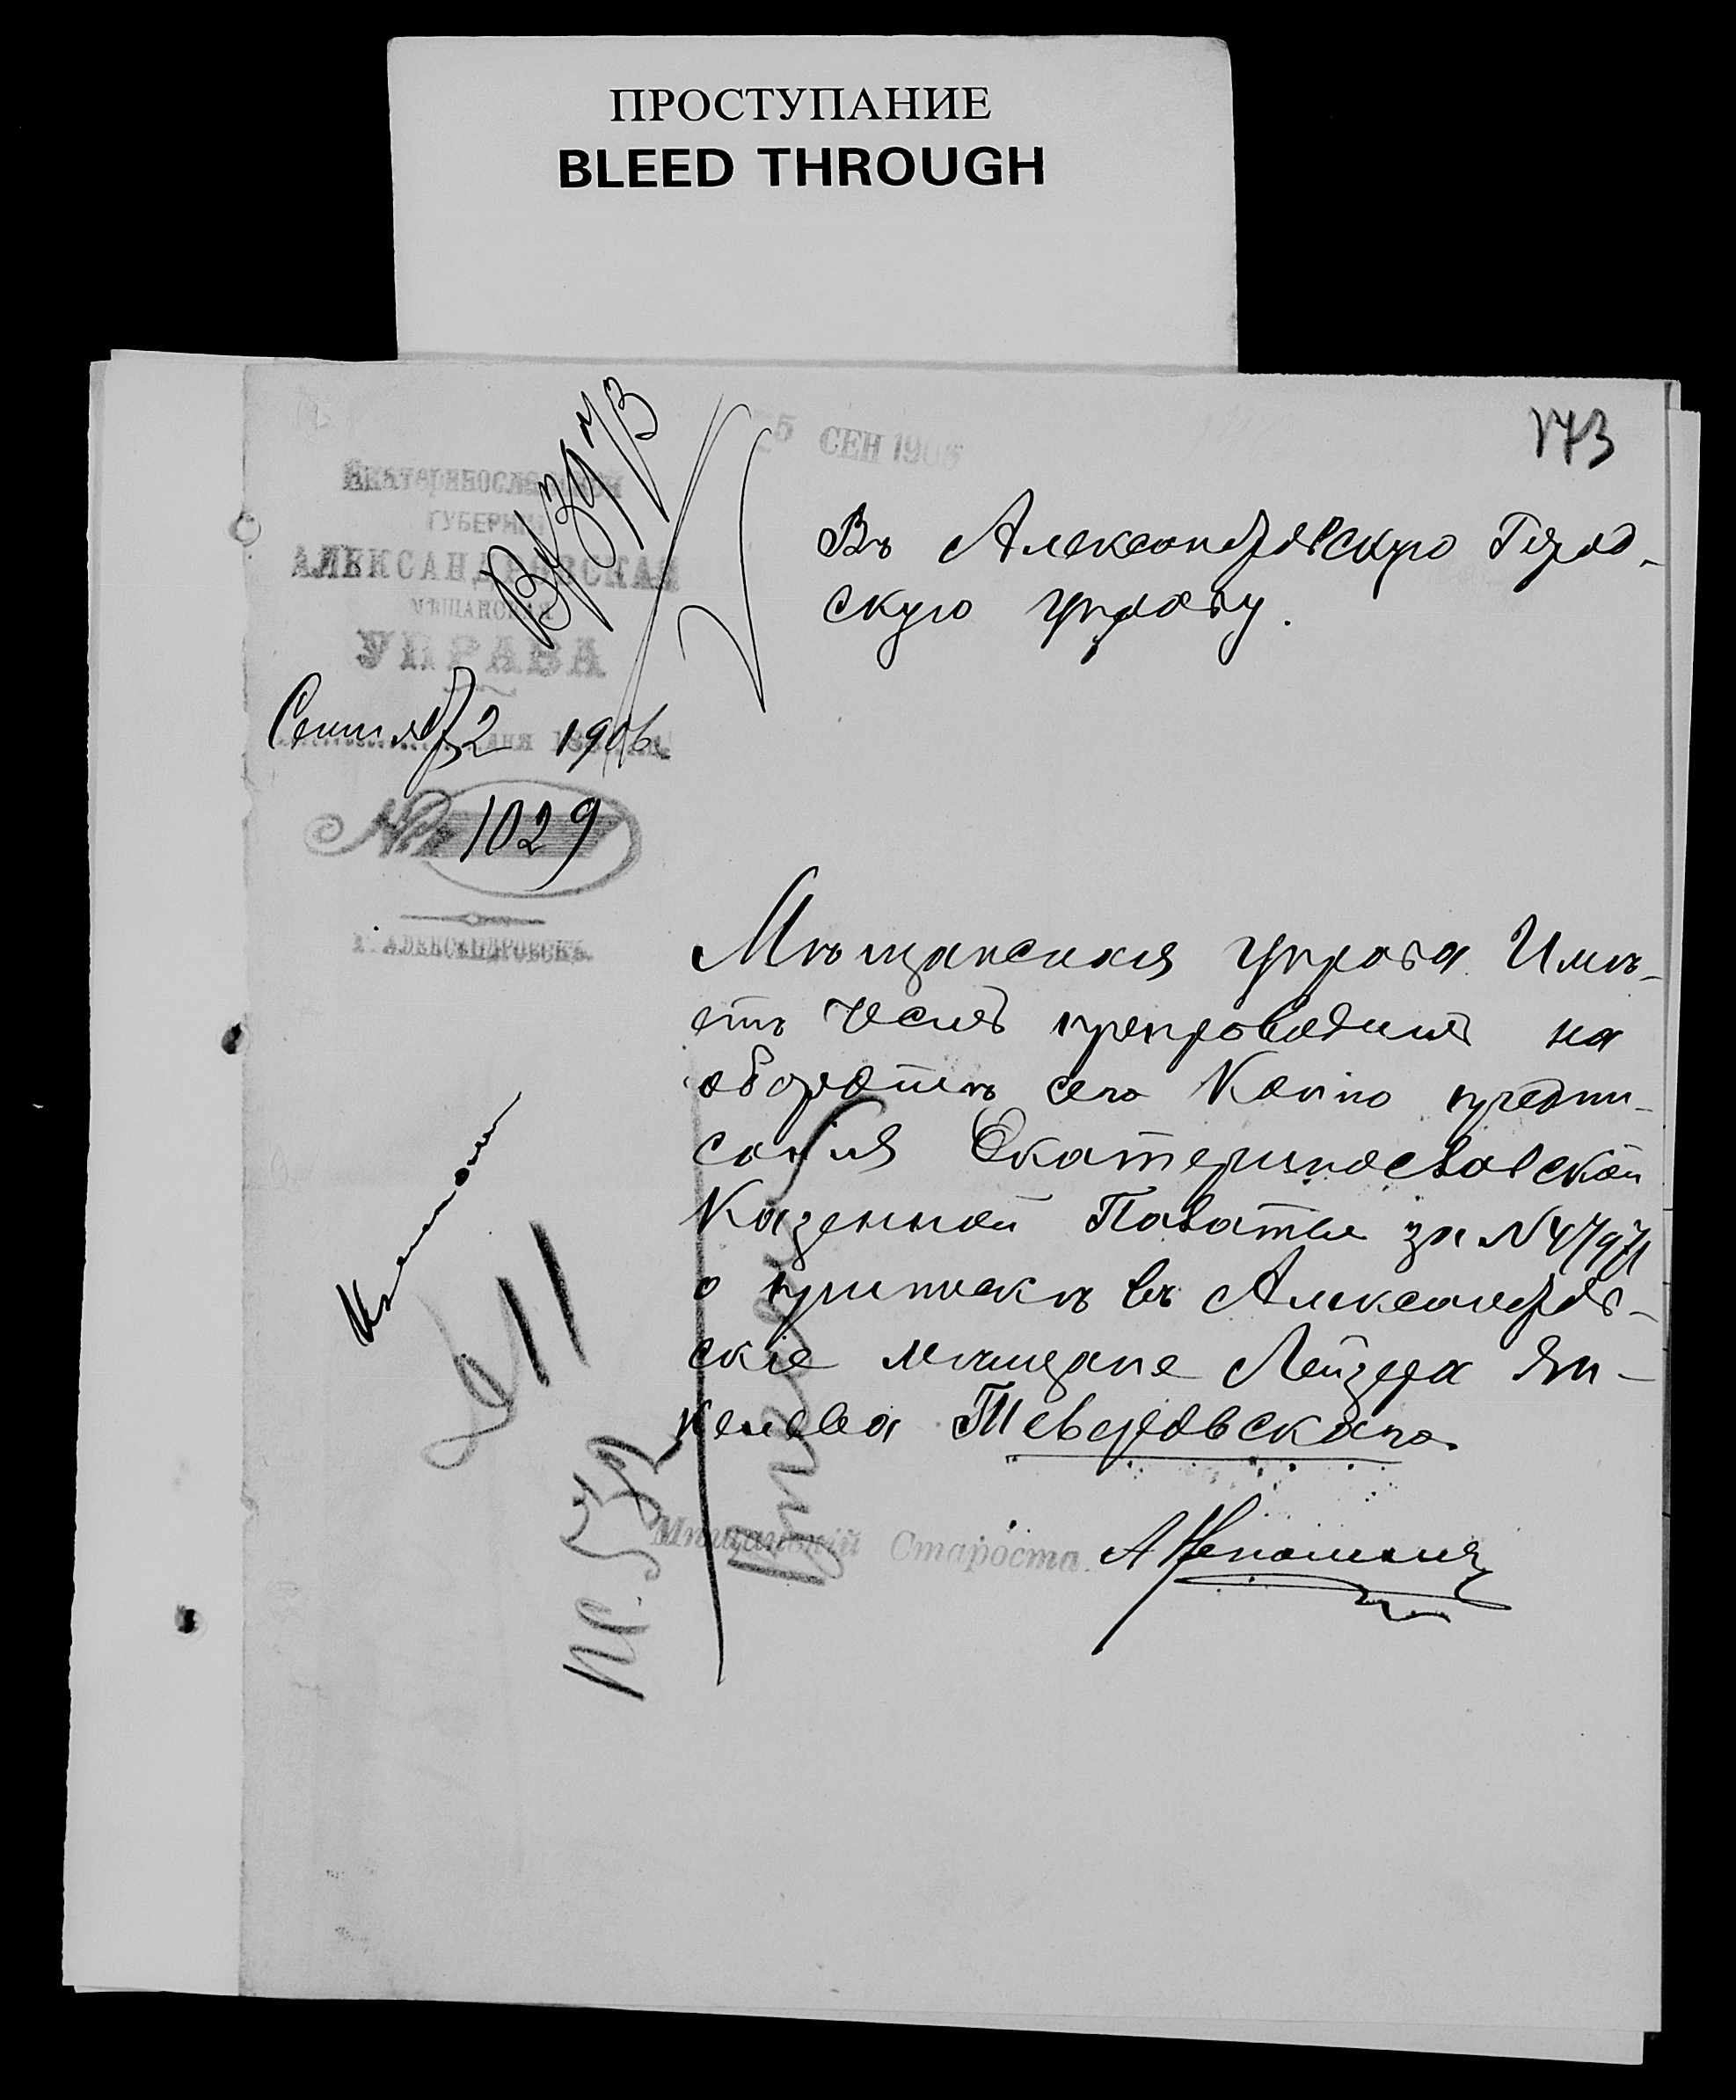 ПРОСТУПАНИЕ
BLEED THROUGH
173
5 СЕН 1906
Екатеринославской
ГУБЕРНІИ
АЛЕКСАНДРОВСКАЯ
МѢЩАНСКАЯ
УПРАВА
Сентября 2 дня 1906
№ 1029
Г. АЛЕКСАНДРОВСКЪ.
Въ Александровскую Город-
скую Управу.
Мѣщанская Управа Имѣ-
етъ честь препроводить на
оборотѣ сего Копію предпи-
санія Екатеринославской
Казенной Палаты за № 47971
о припискѣ въ Александров-
скіе мѣщане Лейзера Ян-
келева Тевзеровскаго.
Мѣщанскій Староста